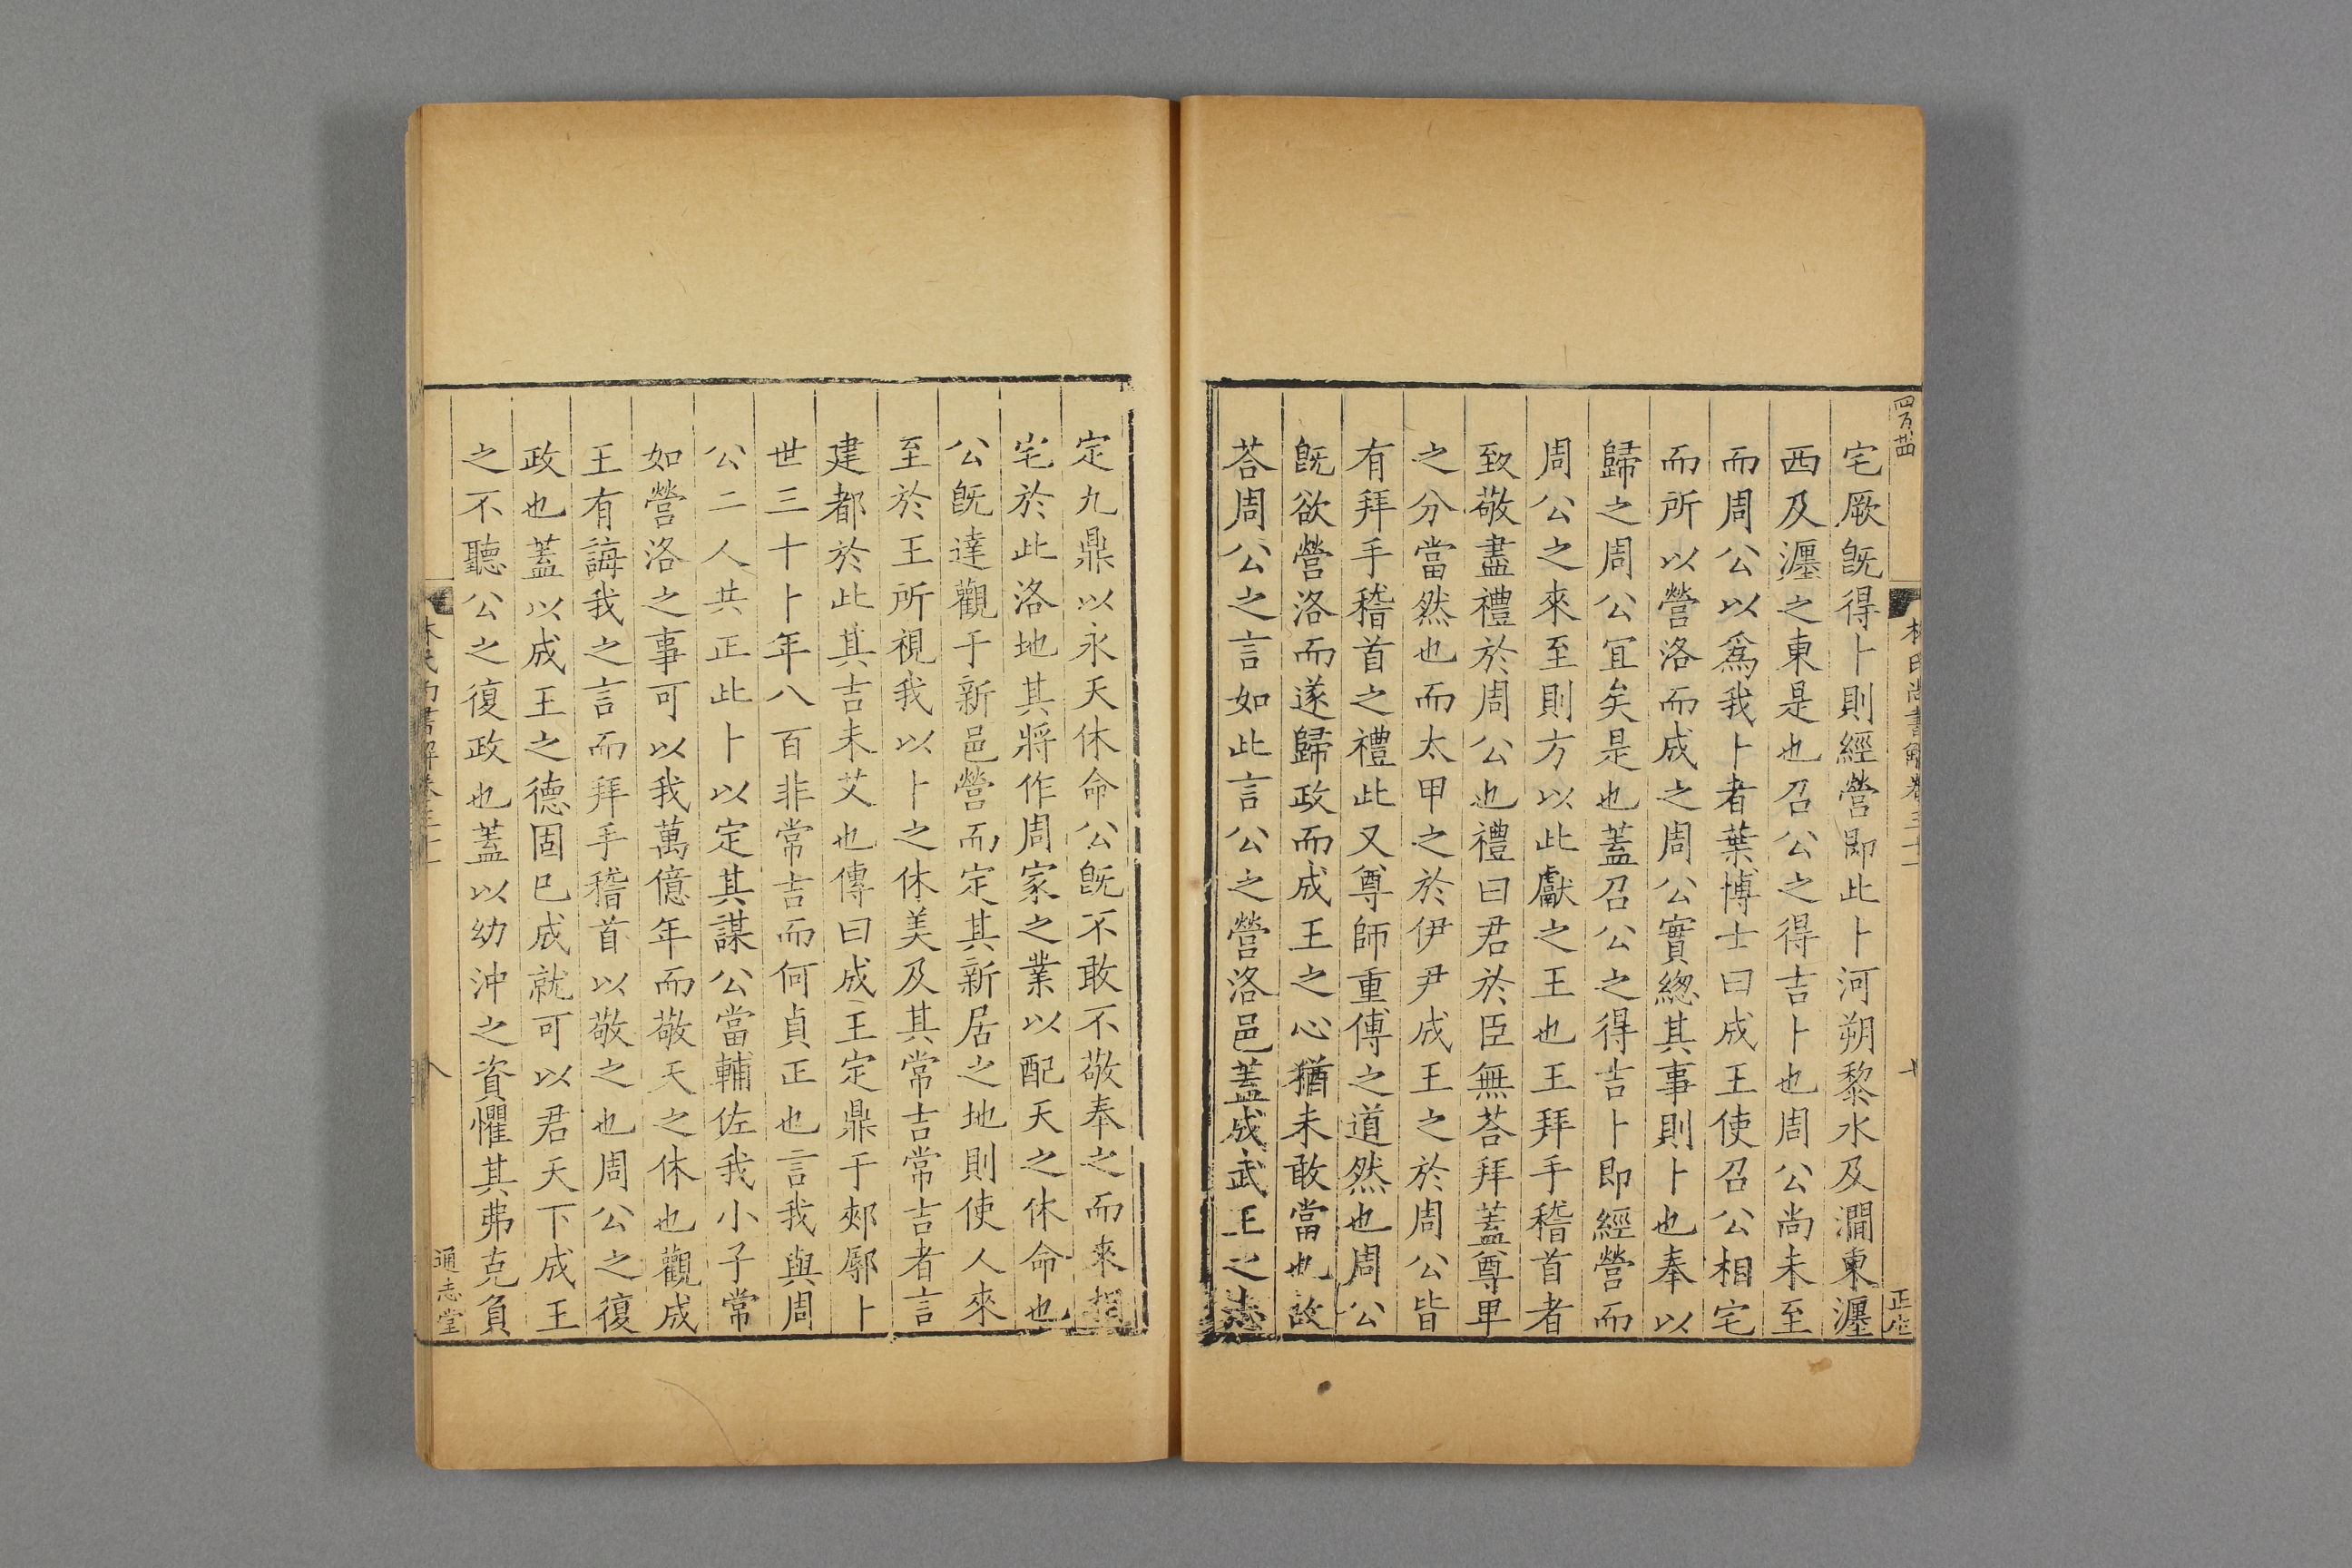 宅厥旣得卜則經營卽此卜河朔黎水及澗東瀍
西及瀍之東是也召公之得吉卜也周公尚未至
而周公以爲我卜者葉博士曰成王使召公相宅
而所以營洛而成之周公實緫其事則卜也奉以
歸之周公宜矣是也蓋召公之得吉卜即經營而
周公之來至則方以此獻之王也王拜手稽首者
致敬盡禮於周公也禮曰君於臣無荅拜蓋尊卑
之分當然也而太甲之於伊尹成王之於周公皆
有拜手稽首之禮此又尊師重傅之道然也周公
旣欲營洛而遂歸政而成王之心猶未敢當也故
荅周公之言如此言公之營洛邑蓋成武王之志
定九鼎以永天休命公旣不敢不敬奉之而來相
宅於此洛地其將作周家之業以配天之休命也
公旣達觀于新邑營而定其新居之地則使人來
至於王所視我以卜之休美及其常吉常吉者言
建都於此其吉未艾也傳曰成王定鼎于郟鄏卜
世三十卜年八百非常吉而何貞正也言我與周
公二人共正此卜以定其謀公當輔佐我小子常
如營洛之事可以我萬億年而敬天之休也觀成
王有誨我之言而拜手稽首以敬之也周公之復
政也蓋以成王之德固已成就可以君天下成王
之不聽公之復政也蓋以幼沖之資懼其弗克負
八
通志堂